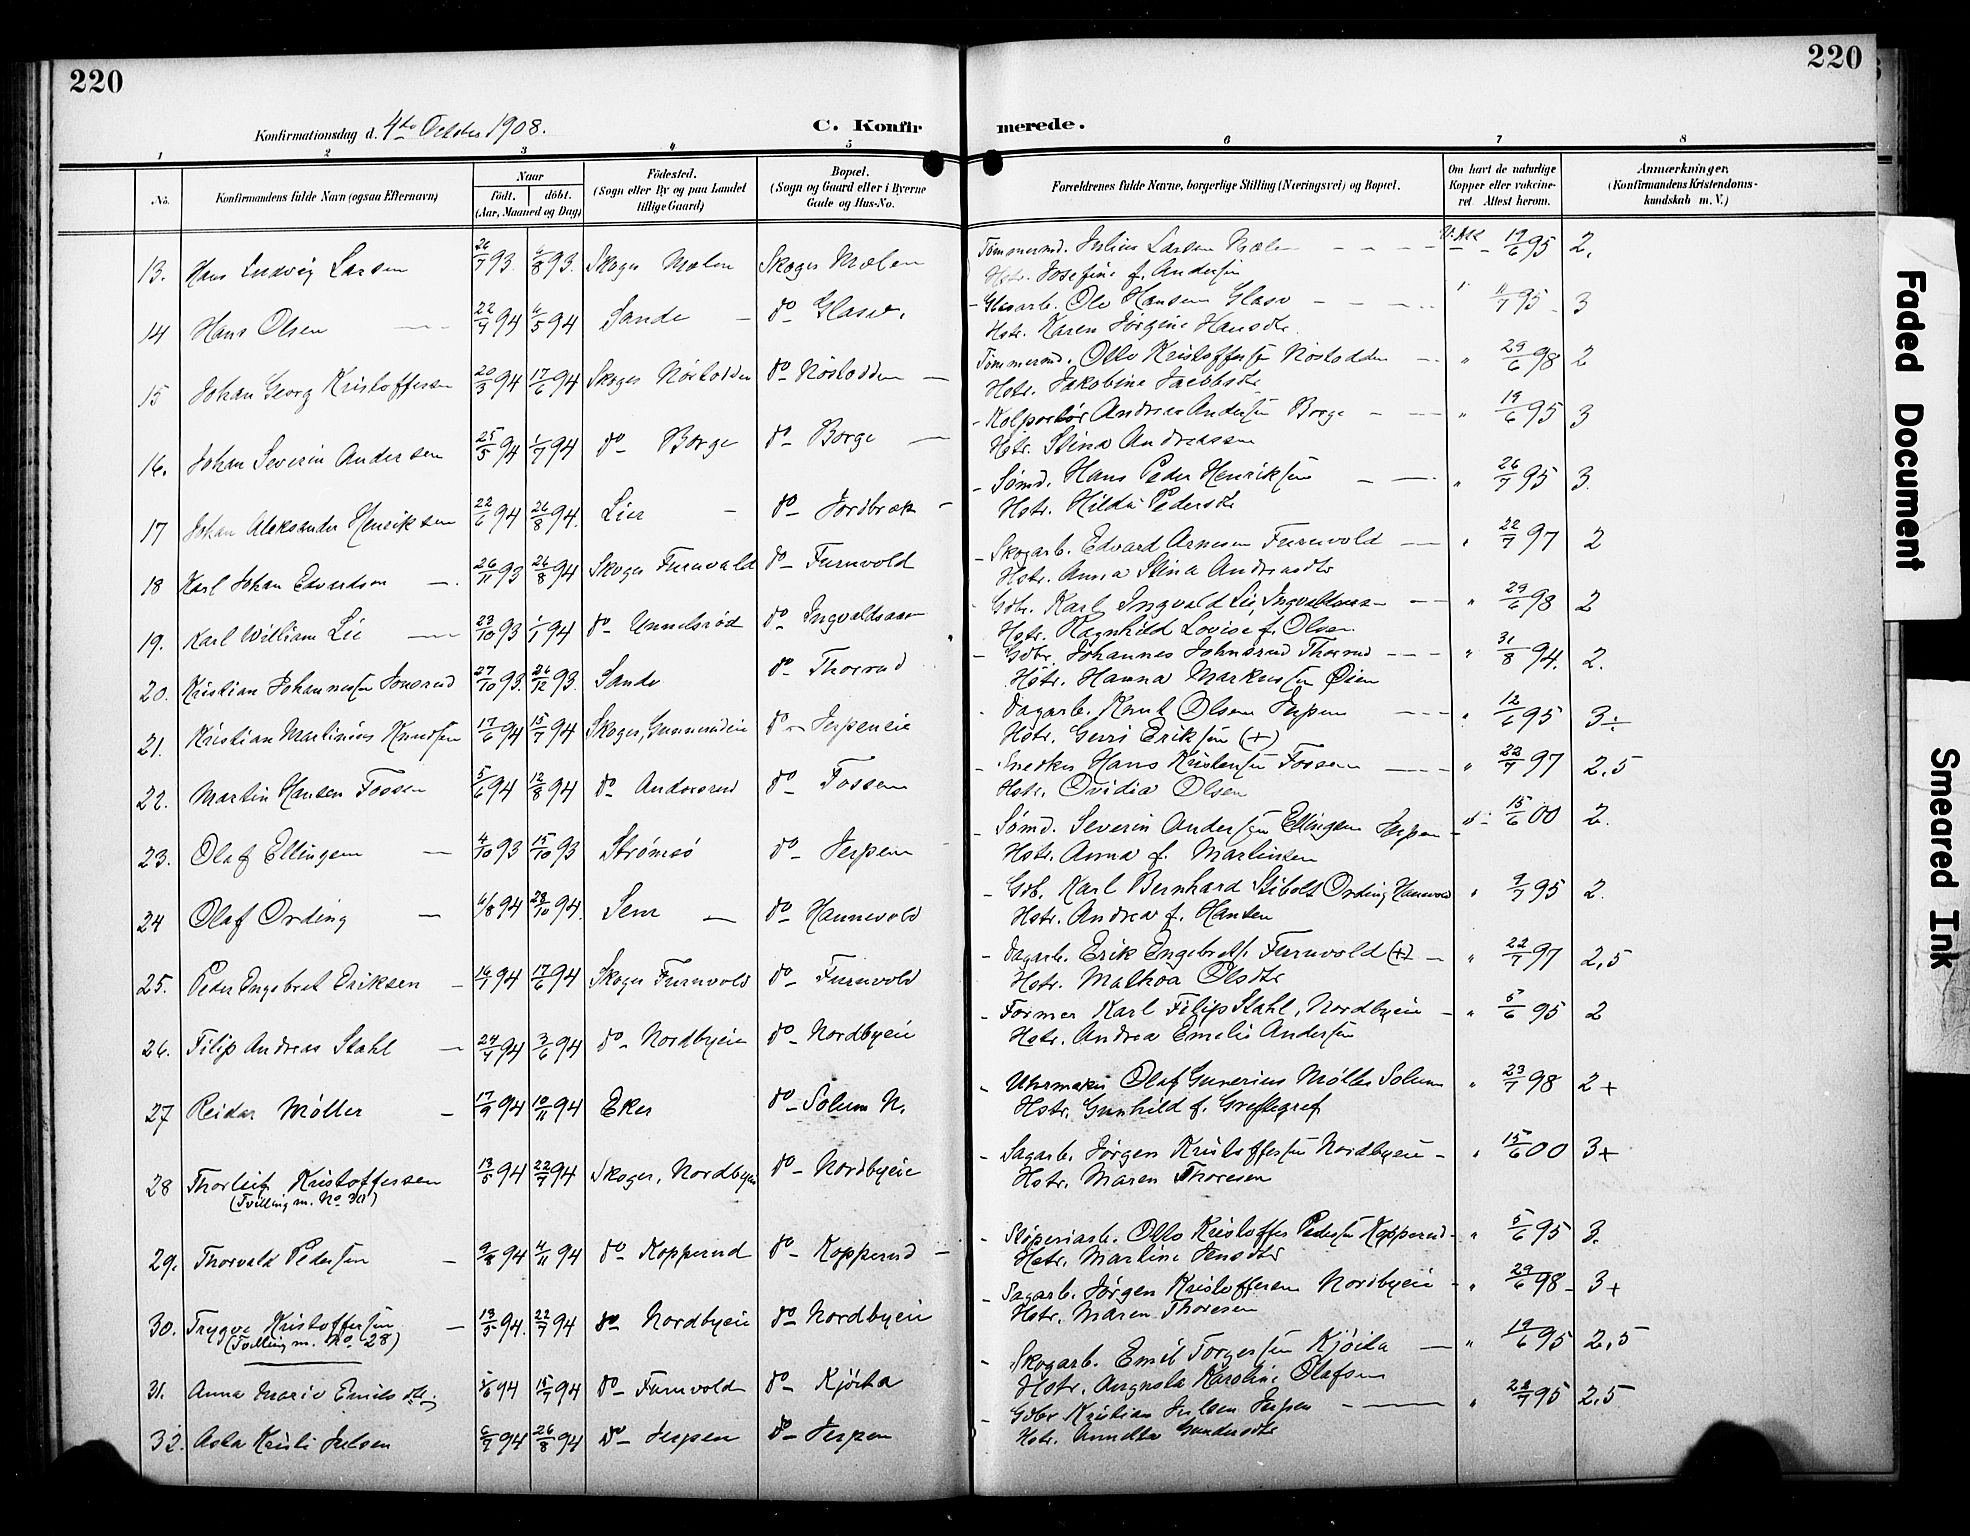 220
220
Konfirmationsdag d. 4de October 1908.
C. Konfir
merede.
1 2 3 4 5 6 7 8
No.
Konfirmandens fulde Navn (ogsaa Efternavn)
Naar
født. døbt.
(Aar, Maaned og Dag)
Fødested.
(Sogn eller By og paa Landet
tillige Gaard)
Bopæl.
(Sogn og Gaard eller i Byerne
Gade og Hus-No.
Forældrenes fulde Navne, borgerlige Stilling (Næringsvei) og Bopæl.
Om havt de naturlige
Kopper eller vakcine-
ret Attest herom.
Anmærkninger,
(Konfirmandens Kristendoms-
kundskab m. V.)
13. Hans Ludvig Larsen 26/7 93. 6/8 93. Skoger Mælen Skoger Mælen Tømmermd. Julius Larsen Mælen 19/6 95 2.
Hstr. Josefine f. Andersen
14 Hans Olsen 22/4 94 6/5 94 Sande do Glasv. Glasarb. Ole Hansen Glasv 11/7 95 3
Hstr. Karen Jørgine Hansdtr.
15 Johan Georg Kristoffersen 20/3 94 17/6 94 Skoger Nøstodden do Nøstodden Tømmermd. Otto Kristoffersen Nøstodden " 29/6 98 2
Hstr. Jakobine Jacobsdtr
16. Johan Severin Andersen 25/5 94 1/7 94 do Borge do Borge Kolportør Andreas Andersen Borge " 19/6 95 3
Hstr. Stina Andreassen
17 Johan Aleksander Henriksen 22/6 94 26/8 94. Lier do Jordbræk Sømd. Hans Peder Henriksen " 26/7 95 3.
Hstr. Hilda Pedersdtr
18 Karl Johan Edvardsen 26/11 93 26/8 94 Skoger Furuvold do Furuvold Skogarb. Edvard Arnesen Furuvold " 22/7 97 2
Hstr. Anna Stina Andreasdtr
19. Karl William Lie 23/10 93 1/1 94 do Unnelsrød do Ingvaldsaas Gdbr. Karl Ingvald Lie, Ingvaldsaas " 29/6 98 2
Hstr. Ragnhild Lovise f. Olsen
20. Kristian Johannessen Jonsrud 27/10 93. 26/12 93. Sande do Thorrud Gdbr. Johannes Johnsrud Thorrud " 31/8 94. 2.
Hstr. Hanna Markussen Øien
21. Kristian Martinius Knudsen 17/6 94 15/7 94 Skoger, do Jerpeneie Dagarb. Knut Olsen Jerpen " 12/6 95 3÷
Hstr. Eriksen (+)
22. Martin Hansen Fossen 5/6 94 12/8 94 do Andorsrud do Fossen Snedker Hans Kristensen Fossen " 22/7 97 2,5
Hstr. Ovidia Olsen
23. Olaf Ellingsen 4/10 93 15/10 93 Strømsø do Jerpen Sømd. Severin Andersen Ellingsen Jerpen 15/6 00 2.
Hstr. Anna f. Martinsen
24 Olaf Ording 6/8 94 28/10 94. Sem do Hannevold Gdb. Karl Bernhard Stibolt Ording Hannevold " 9/7 95 2.
Hstr. Andrea f. Hansen
25. Peder Engebret Eriksen 94 17/6 94 Skoger Furuvold do Furuvold Dagarb. Erik Engebrets. Furuvold (+) " 22/7 97 2,5
Hstr. Mathea Olsdtr
26. Filip Andreas Stahl 24/4 94 3/6 94 do Nordbyeie do Nordbyeie Former Karl Filip Stahl, Nordbyeie " 5/6 95 2
Hstr. Andrea Emelie Andersen
27 Reidar Møller 17/9 94 10/11 94 Eker do Solum N. Uhrmaker Olaf Gunerius Møller Solum " 23/7 98 2+
Hstr. Gunhild f. Greftegref
28 Thorleif Kristoffersen 13/5 94 22/7 94 Skoger, Nordbyeie do Nordbyeie Sagarb. Jørgen Kristoffersen Nordbyeie " 15/6 00 3+
(Tvilling m. No 30) Hstr. Maren Thoresen
29. Thorvald Pedersen 9/8 94 4/11 94 do Kopperud do Kopperud Støperiarb. Otto Kristoffer Pedersen Kopperud " 5/6 95 3.
Hstr. Martine Jensdtr
30. Trygve Kristoffersen 13/5 94. 22/7 94 do Nordbyeie do Nordbyeie Sagarb. Jørgen Kristoffersen Nordbyeie " 29/6 98 3+
(Tvilling m. No. 28) Hstr. Maren Thoresen
31. Anna Marie Emilsdtr. 94 15/7 94 do Furuvold do Kjösta Skogarb. Emil Torgersen Kjösta " 19/6 95 2,5
Hstr. Augusta Karoline Olafsen
32. Asta Kristi Julsen 6/7 94 26/8 94 do Jerpen do Jerpen Gdbr Kristian Julsen Jerpen " 95 2,5
Hstr. Annette Gundersdtr
Faded Document
Smeared Ink